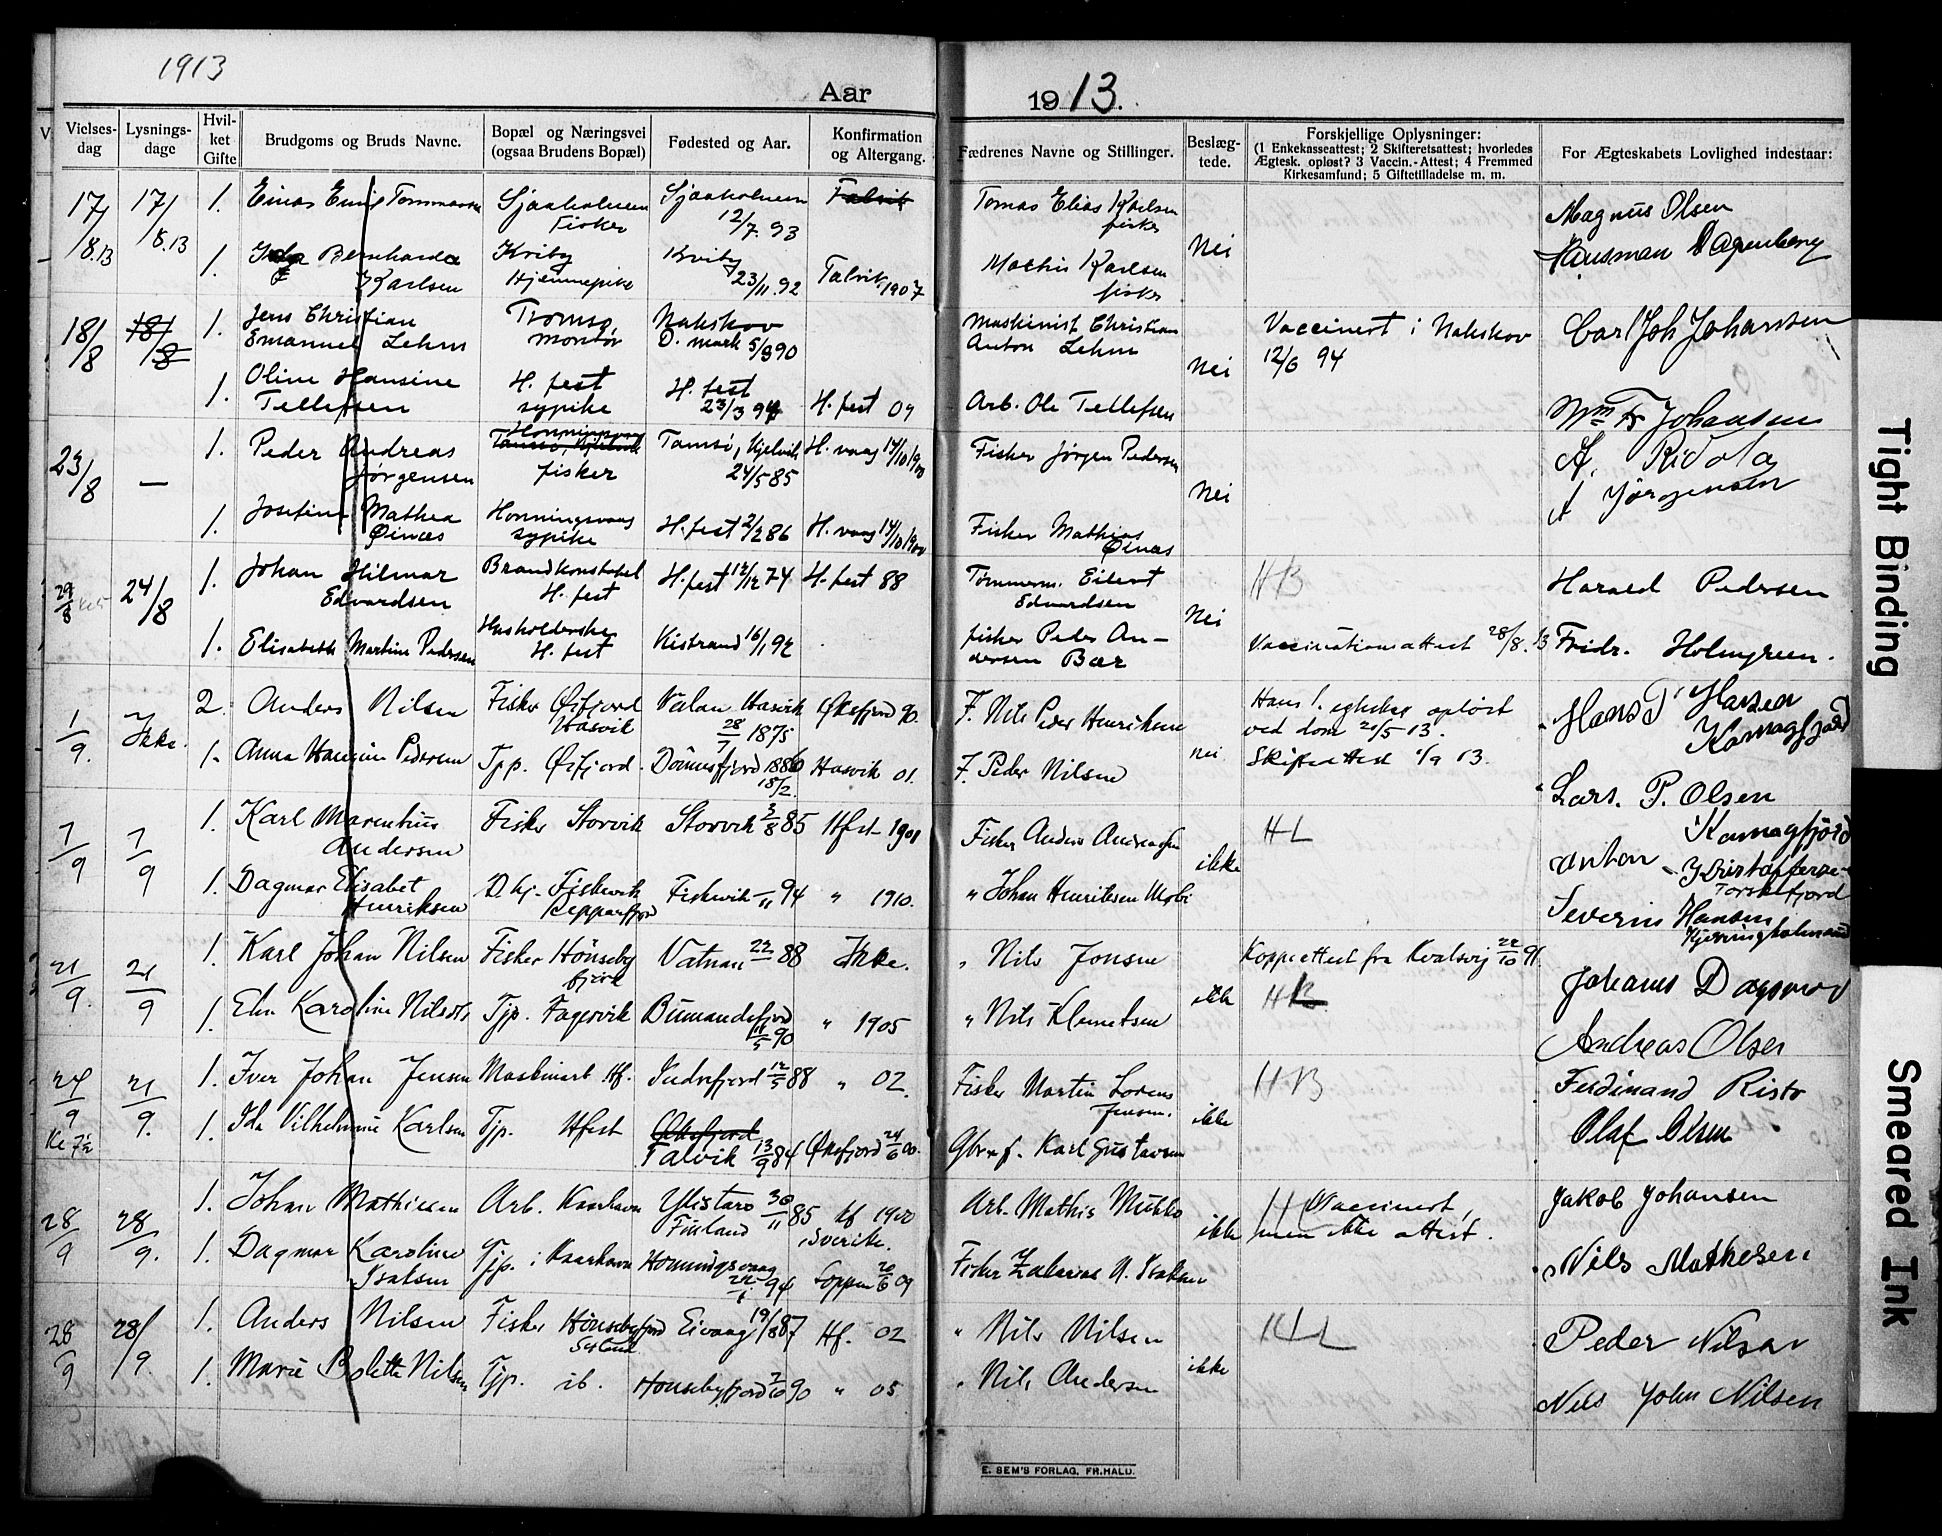 1913
Aar
1913.
Vielses-
dag
Lysnings-
dage
Hvil-
ket
Gifte
Brudgoms og Bruds Navne.
Bopæl og Næringsvei
(ogsaa Brudens Bopæl)
Fødested og Aar.
Konfirmation
og Altergang.
Fædrenes Navne og Stillinger.
Beslæg-
tede.
Forskjellige Oplysninger:
(1 Enkekasseattest; 2 Skifteretsattest; hvorledes
Ægtesk. opløst? 3 Vaccin.-Attest; 4 Fremmed
Kirkesamfund; 5 Giftetilladelse m. m.
For Ægteskabets Lovlighed indestaar:
17/8.13 17/8.13 1. Einar Tommasen Fisker 12/7. 93 Talvik Tomas Elias Karlsen
fisker Nei Magnus Olsen
1. Bernharda
Karlsen Kviby
Hjemmepike Kviby
23/11.92 Talvik 1907 Mathis Karlsen
fisker
18/8 18/8 1. Jens Christian
Emanuel Lehm Tromsø,
montør Nakskov
D. mark 5/8 90 Maskinist Christian
Anton Lehm Nei Vaccinert i Nakskov
12/6 94 Carl Joh Johansen
1. Oline Hansine
Tellefsen H. fest
sypike H. fest
23/3 94 H. fest 09 Arb. Ole Tellefsen Wm Fr Johansen
23/8 — 1. Peder Andreas
Jørgensen Honningsvaag
fisker Tamsø, Kjelvik
24/5 85 H. vaag 14/10 1900 Fisker Jørgen Pedersen Nei A. Ridola
A Jørgensen
1. Josefine Mathea
Øinæs Honningsvaag
sypike H. fest 2/2 86 H. vaag 14/10 1900 Fisker Mathias
Øinæs
29/8 24/8 1. Johan Hilmar
Edvardsen Brandkonstabel
H. fest H. fest 12/12 74 H. fest 88 Tømmerm. Eilert
Edvardsen Nei HB Harald Pedersen
1. Elisabeth Martine Pedersen Husholderske
H. fest Kistrand 16/1 92 fisker Peder An-
dersen Bær Vaccinationsattest 28/8. 13 Fridr. Holmgreen.
1/9. Ikke. 2. Anders Nilsen Fisker Øxfjord
Hasvik Hasvik
28/7 1875 Øksfjord 90. F. Nils Peder Henriksen nei Hans 1. egteskap opløst
ved dom 20/5 13.
Skifteattest 1/9 13. Hans P Hansen
Komagfjord
1. Anna Hansine Pedersen Tjp. Øxfjord Dønnesfjord 1886
18/2. Hasvik 01. F. Peder Nilsen Lars. P. Olsen
Komagfjord
7/9 7/9 1. Karl Marenhius
Andersen Fisker Storvik Storvik 3/8 85 Hfest 1901 Fisker Anders Andreassen ikke HL Anton Kristoffersen
Torskefjord
1. Dagmar Elisabet
Henriksen Fiskevik
Repparfjord Fiskevik 94 " 1910. " Johan Henriksen Severin Hansen
21/9. 21/9 1. Karl Johan Nilsen Fisker Hønseby
fjord Vatnan 88 Ikke. " Nils Jonsen ikke Koppeattest fra Kvalsvig 22/10 91. Johans Dagsvold
1. Elen Karoline Nilsdtr Tjp. Fagervik Bumandsfjord
90 " 1905 " Nils Klemetsen Andreas Olsen
27/9 21/9. 1. Iver Johan Jensen Maskinarb. Hf. Indrefjord 12/5 88 " 02. Fisker Martin Lorens
Jensen. ikke HB Ferdinand Risto
1. Ida Vilhelmine Karlsen Tjp. Hfest Øksfjord
Talvik 13/9 84 Øksfjord 24/6 00. Gbr. f. Karl Gustavsen Olaf Olsen
28/9 28/9. 1. Johan Mathisen Arb. Kaarhavn Ylistaro 30/11 85
Finland kf 1902
i Sverike. Arb. Mathis ikke HL Vaccinert,
men ikke attest. Jakob Johansen
1. Dagmar Karoline
Isaksen Tjp. i Kaarhavn Honningsvaag
94 Loppen 20/6 09 Fisker Zakarias N. Isaksen Nils Mathesen
28/9 28/9. 1. Anders Nilsen Fisker Hønsebyfjord Eivaag 19/8 87 Hf. 02 " Nils Nilsen ikke HL Peder Nilsen
1. Marie Bolette Nilsen Tjp. ib. Hønsebyfjord 90 " 05. " Nils Andersen Nils John Nilsen
E. SEM'S FORLAG, FR.HALD.
Tight Binding
Smeared Ink